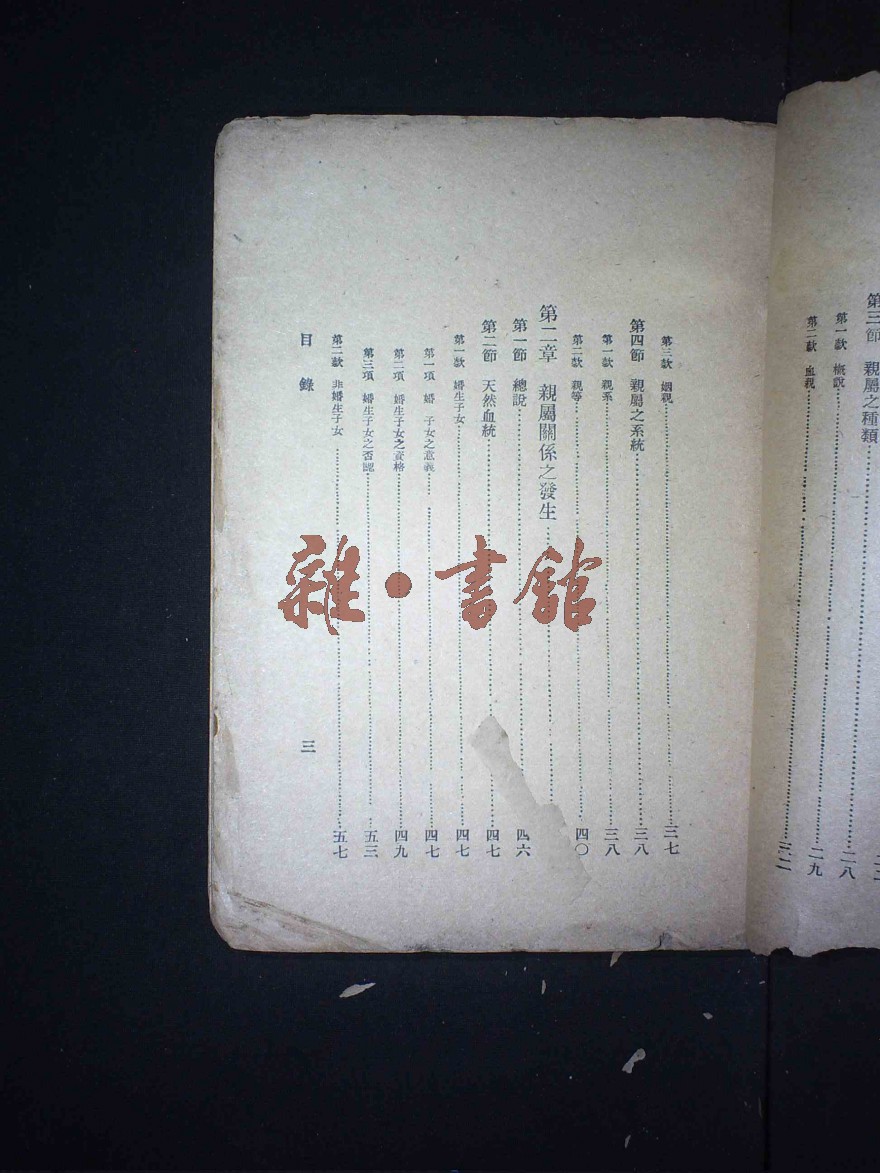 第三節 親屬之種類
第一款 概說……二八
第二款 血親……二九
第三款 姻親……三七
第四節 親屬之系統……三八
第一款 親系……三八
第二款 親等……四〇
第二章 親屬關係之發生……
第一節 總說……四六
第二節 天然血統……四七
第一款 婚生子女……四七
第一項 婚 子女之意義……四七
第二項 婚生子女之資格……四九
第三項 婚生子女之否認……五三
第二款 非婚生子女……五七
目錄 三
雜·書館